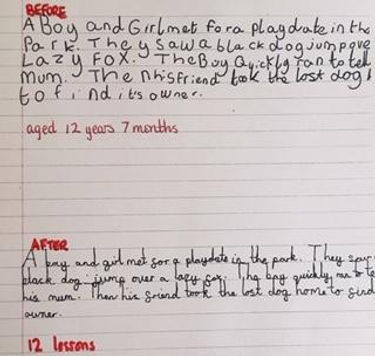 BEFORE
A Boy and Girl met for a playdate in the
Park. They saw a black dog jump ove
Lazy Fox. The Boy Quickly ran to tell
Mum. Then his friend took the lost dog
to find its owner.
aged 12 years 7 months
AFTER
A boy and girl met for a playdate in the park. They saw
black dog jump over a lazy fox. The boy quickly ran to te
his mum. Then his friend took the lost dog home to find
owner.
12 lessons